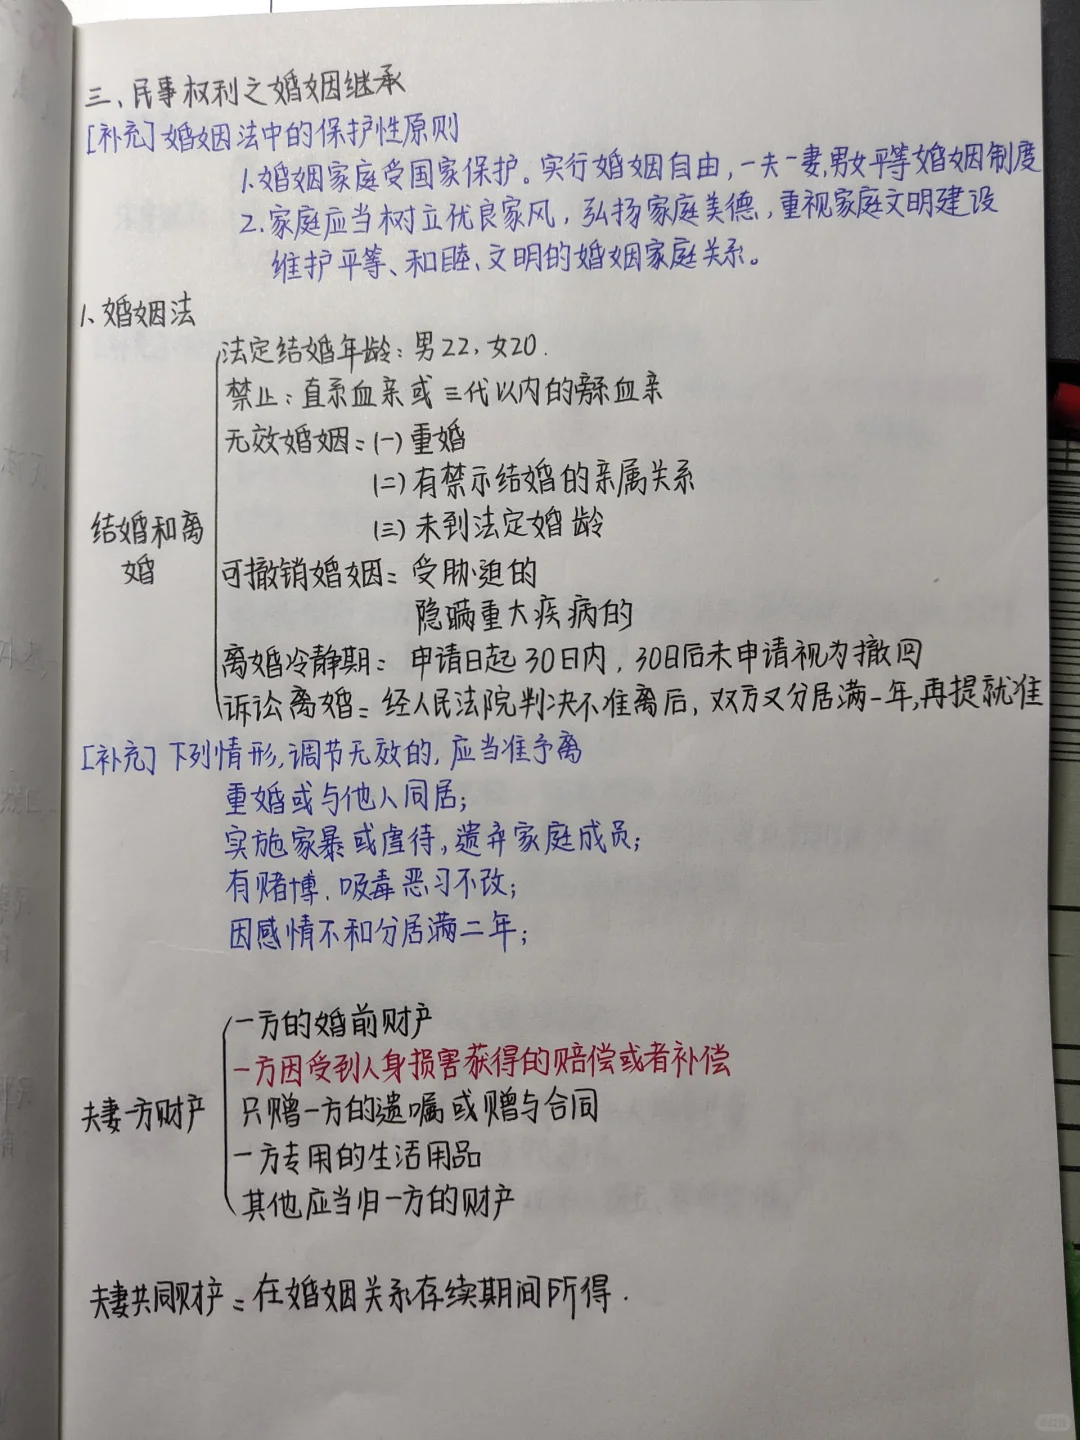 三、民事权利之婚姻继承
[补充]婚姻法中的保护性原则
1.婚姻家庭受国家保护。实行婚姻自由,一夫一妻,男女平等婚姻制度
2.家庭应当树立优良家风,弘扬家庭美德,重视家庭文明建设
维护平等、和睦、文明的婚姻家庭关系。
1、婚姻法
法定结婚年龄:男22,女20.
禁止:直系血亲或三代以内的旁系血亲
无效婚姻:(一)重婚
(二)有禁示结婚的亲属关系
(三)未到法定婚龄
结婚和离
婚
可撤销婚姻:受胁迫的
隐瞒重大疾病的
离婚冷静期:申请日起30日内,30日后未申请视为撤回
诉讼离婚:经人民法院判决不准离后,双方又分居满一年,再提就准
[补充]下列情形,调节无效的,应当准予离
重婚或与他人同居;
实施家暴或虐待,遗弃家庭成员;
有赌博、吸毒恶习不改;
因感情不和分居满二年;
一方的婚前财产
一方因受到人身损害获得的赔偿或者补偿
夫妻一方财产
只赠一方的遗嘱或赠与合同
一方专用的生活用品
其他应当归一方的财产
夫妻共同财产:在婚姻关系存续期间所得.